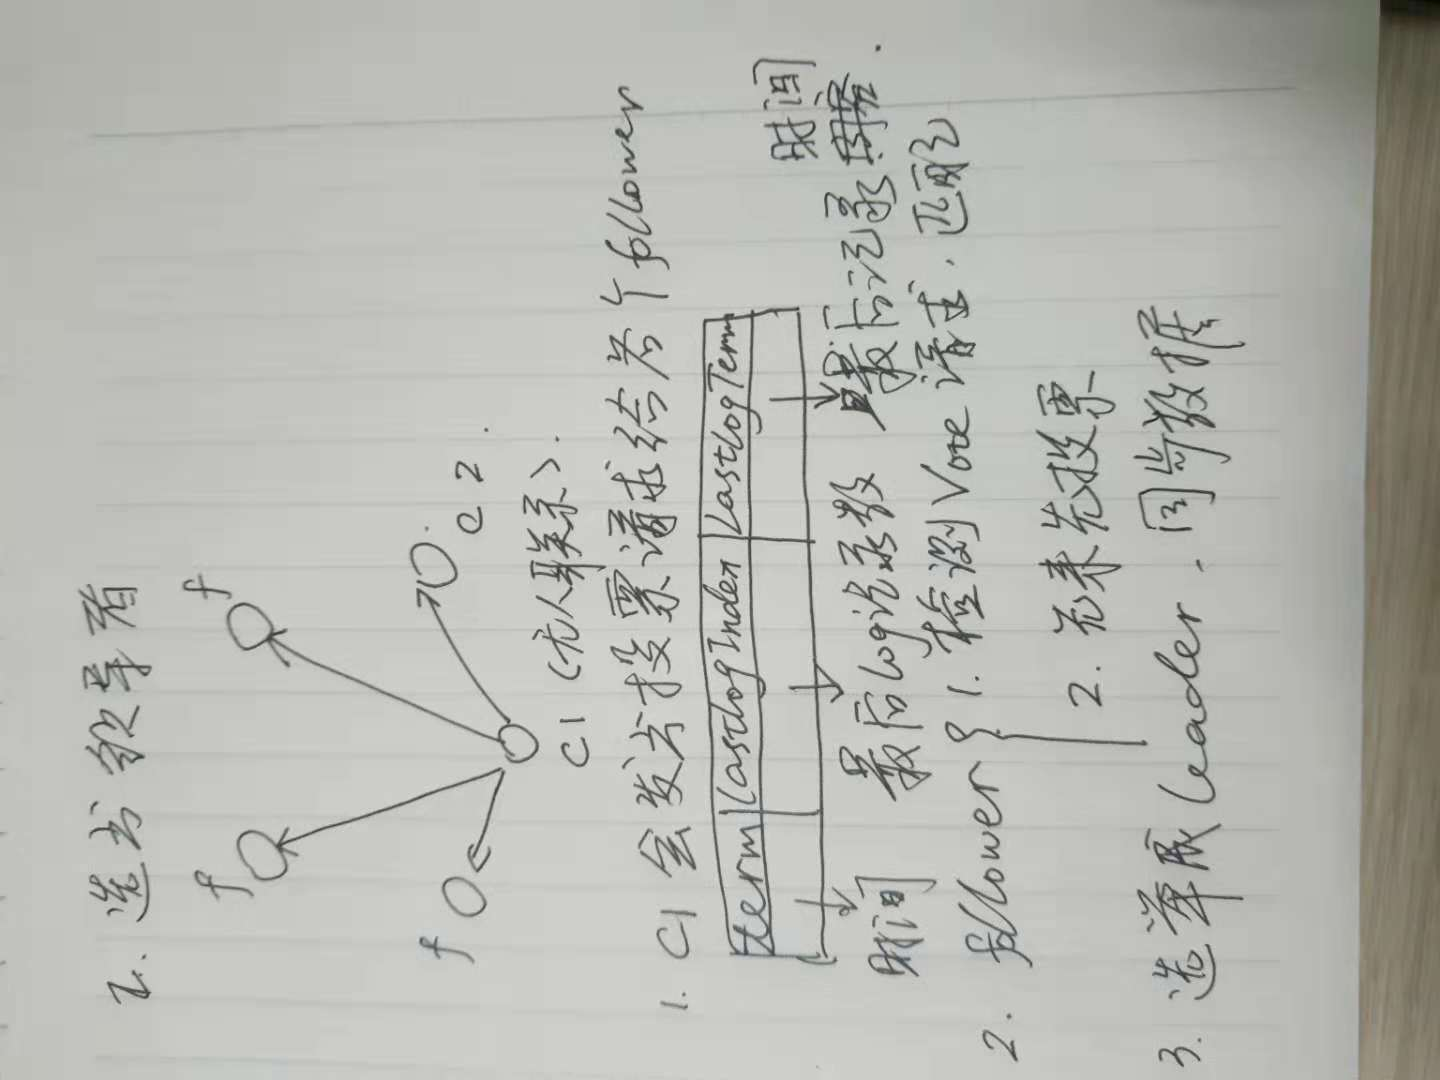 2. 选出领导者
f
f
f
c2.
C1 (无人联系).
1. C1 会发出投票请求给若个follower
term lastlogIndex lastlogTerm
时间
时间 最后log记录数 最后记录
2. follower { 1. 检测Vote请求, 匹配
2. 先来先投票
3. 选举成leader. 同步数据